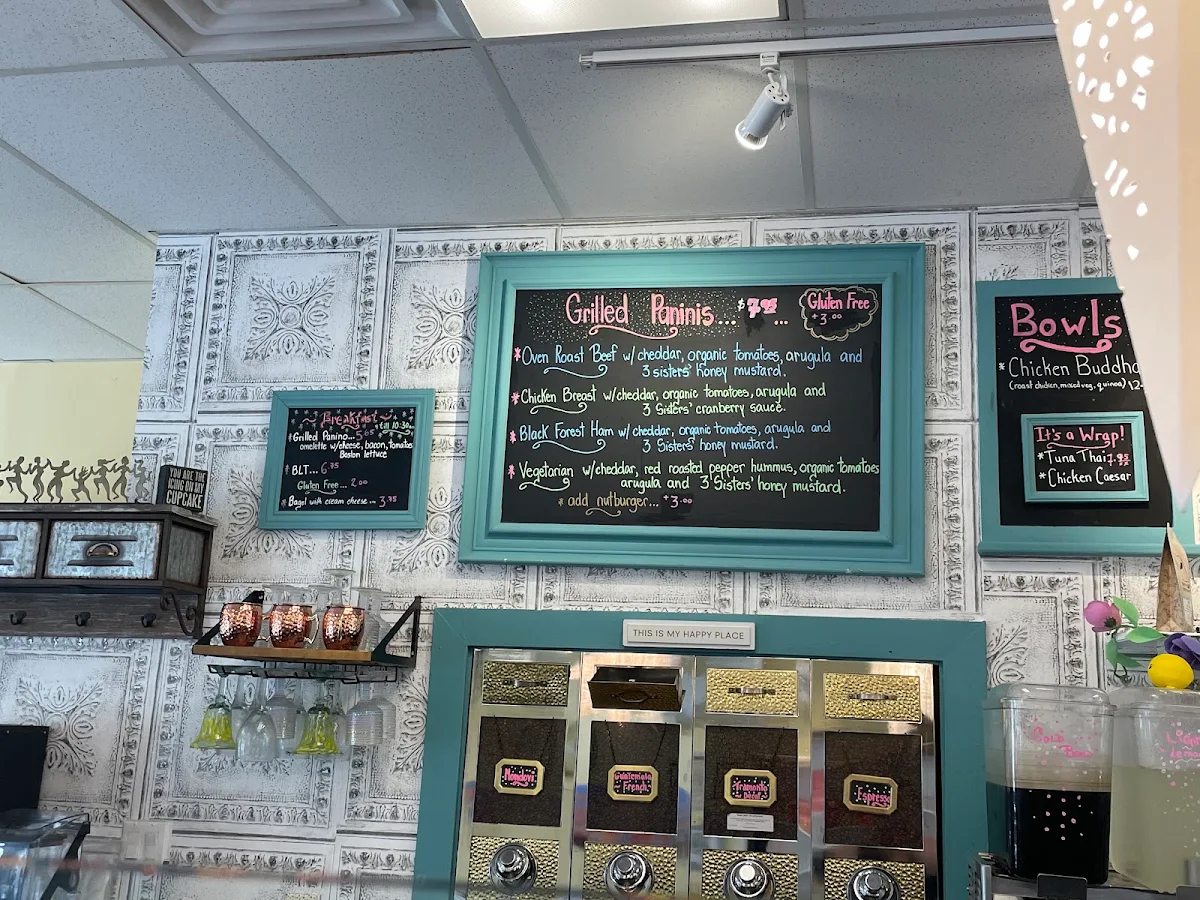 YOU ARE THE
ICING ON MY
CUPCAKE
Breakfast
till 10:30am
*Grilled Panino...5.65
omelette w/cheese, bacon, tomatoes
Boston lettuce
*BLT...6.75
Gluten Free...2.00
*Bagel with cream cheese...3.75
Grilled Paninis...$7.95...
Gluten Free
+3.00
*Oven Roast Beef w/cheddar, organic tomatoes, arugula and
3 sisters' honey mustard.
*Chicken Breast w/cheddar, organic tomatoes, arugula and
3 Sisters' cranberry sauce.
*Black Forest Ham w/cheddar, organic tomatoes, arugula and
3 Sisters' honey mustard.
*Vegetarian w/cheddar, red roasted pepper hummus, organic tomatoes
arugula and 3 Sisters' honey mustard.
*add nutburger...+3.00
Bowls
*Chicken Buddha
(roast chicken, mixed veg, quinoa) 12-
It's a Wrap!
*Tuna Thai 7.95
*Chicken Caesar
THIS IS MY HAPPY PLACE
Mondovi
Guatemala
French
Tramonto
Decaf
Espresso
Cold